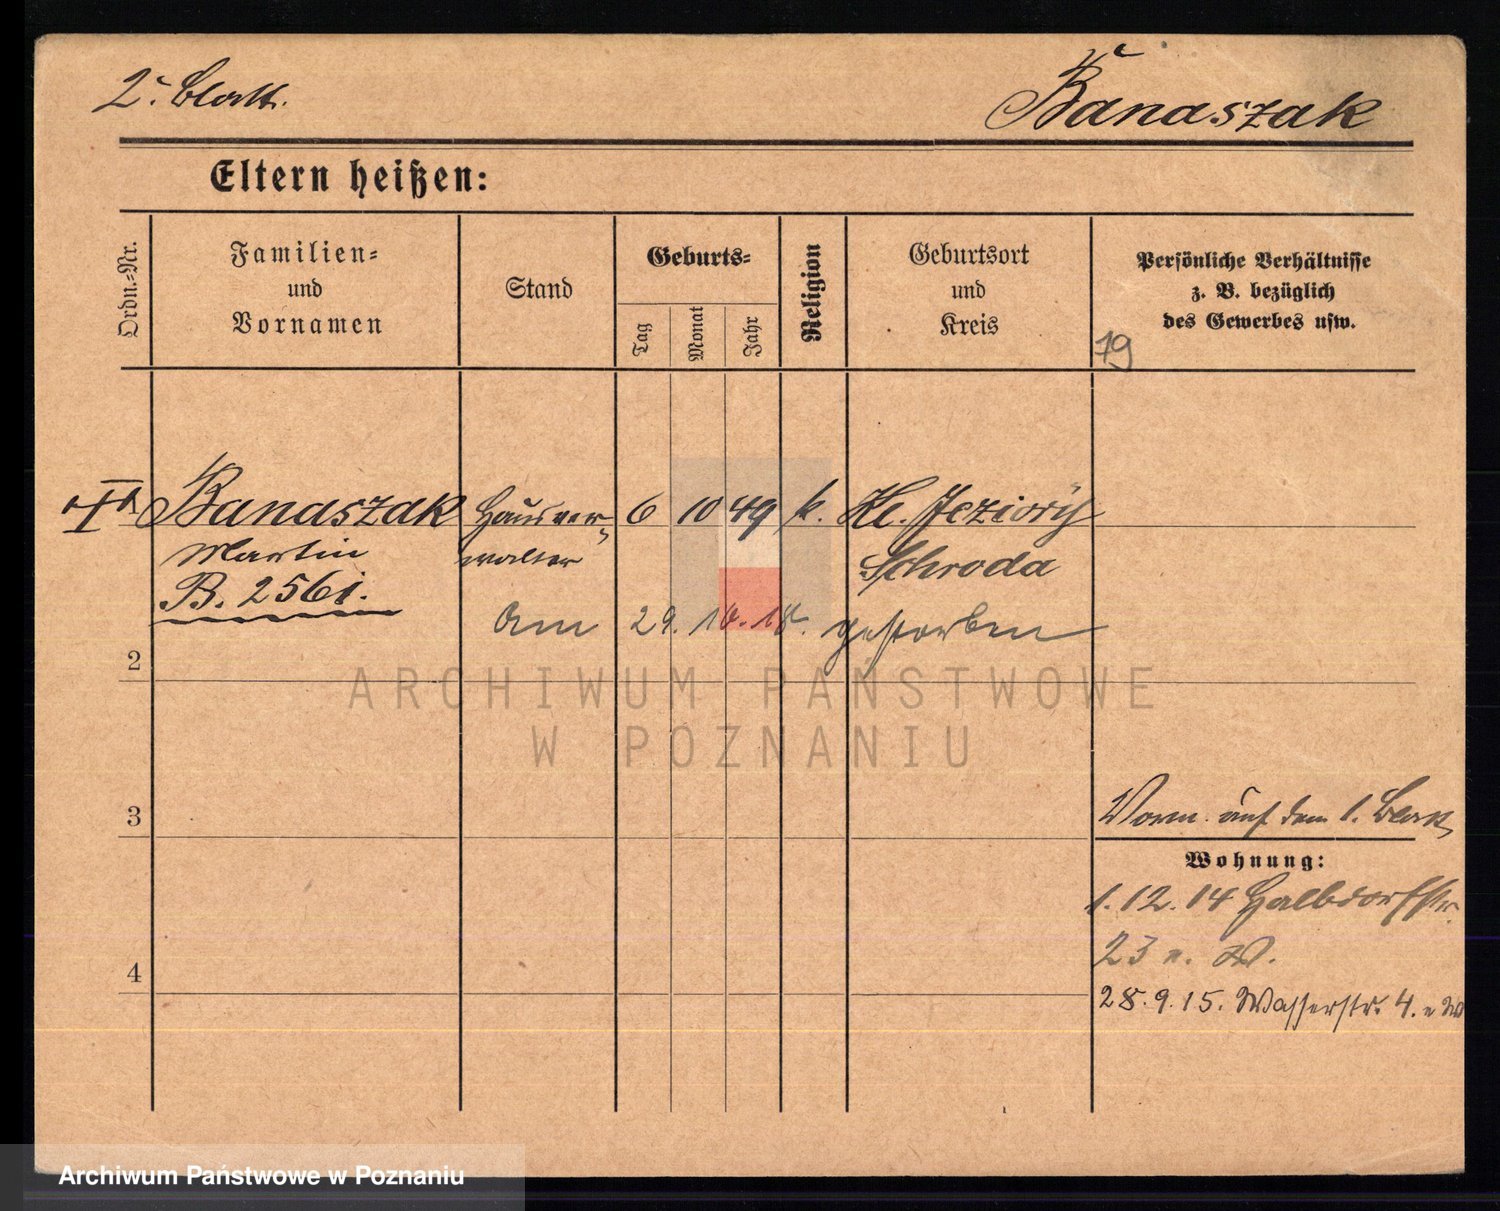 2. Blatt.
Banaszak
Eltern heißen:
Ordn.-Nr.
Familien-
und
Vornamen
Stand
Geburts-
Tag
Monat
Jahr
Religion
Geburtsort
und
Kreis
Persönliche Verhältnisse
z. B. bezüglich
des Gewerbes usw.
79
Banaszak Hausver- 6 10 49 k. Kl. Jeziory
Martin walter Schroda
B. 2561.
Am 29. 10. 18. gestorben
2
ARCHIWUM PAŃSTWOWE
W POZNANIU
3
Vorm. auf dem 1. Blatt
Wohnung:
1.12.14 Halbdorfstr.
23 n. W.
4
28.9.15. Wasserstr. 4. n W
Archiwum Państwowe w Poznaniu